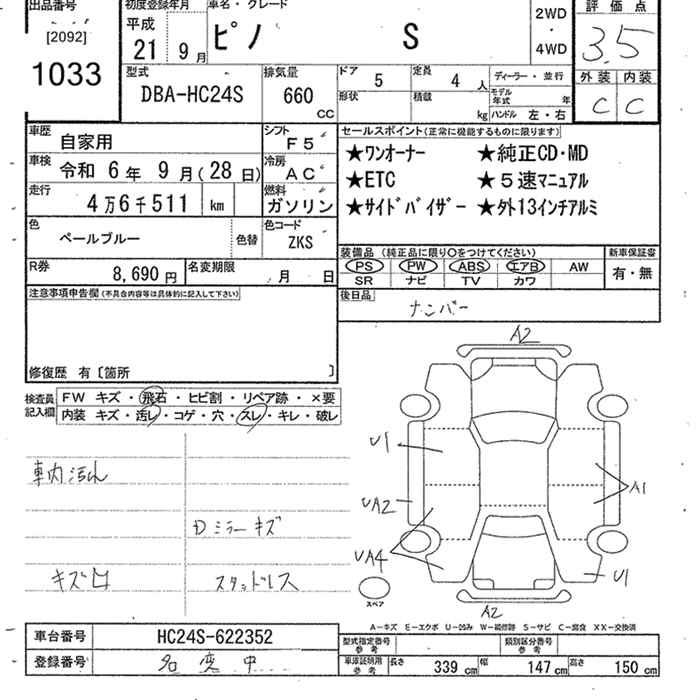 出品番号
[2092]
1033
初度登録年月
平成
21 9月
車名・グレード
ピノ S
2WD
・
4WD
評価点
3.5
外装 内装
C C
型式
DBA-HC24S
排気量
660
CC
ドア 5
定員 4 人
形状
積載 kg
ディーラー・並行
モデル年式 年
ハンドル 左・右
車歴 自家用
車検 令和 6年 9月(28日)
走行 4万6千511 km
色 ペールブルー
色替
シフト F5
冷房 AC
燃料 ガソリン
色コード ZKS
R券 8,690円
名変期限 月 日
セールスポイント(正常に機能するものに限ります)
★ワンオーナー ★純正CD・MD
★ETC ★5速マニュアル
★サイドバイザー ★外13インチアルミ
装備品 (純正品に限り○をつけてください)
PS PW ABS エアB AW
SR ナビ TV カワ
新車保証書
有・無
後日品
ナンバー
注意事項申告欄(不具合内容等は具体的に記入して下さい)
修復歴 有〔箇所 〕
検査員記入欄
FW キズ・飛石・ヒビ割・リペア跡・×要
内装 キズ・汚レ・コゲ・穴・スレ・キレ・破レ
車内汚れ
Dミラーキズ
キズ凹
スタッドレス
A2
U1
UA2
UA4
A1
U1
A2
スペア
A−キズ E−エクボ U−凹み W−補修跡 S−サビ C−腐食 XX−交換済
車台番号 HC24S-622352
登録番号 名変中
型式指定番号 参考
類別区分番号 参考
車庫証明用 参考
長さ 339 cm 幅 147 cm 高さ 150 cm